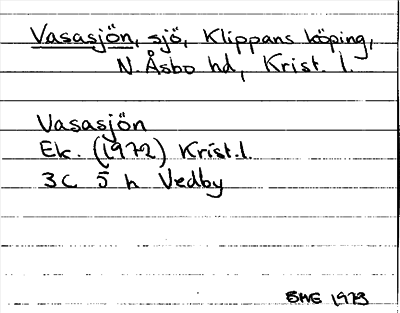 Vasasjön, sjö, Klippans köping,
N. Åsbo hd, Krist. l.
Vasasjön
Ek. (1972) Krist. l.
3C 5 h Vedby
SWE 1973